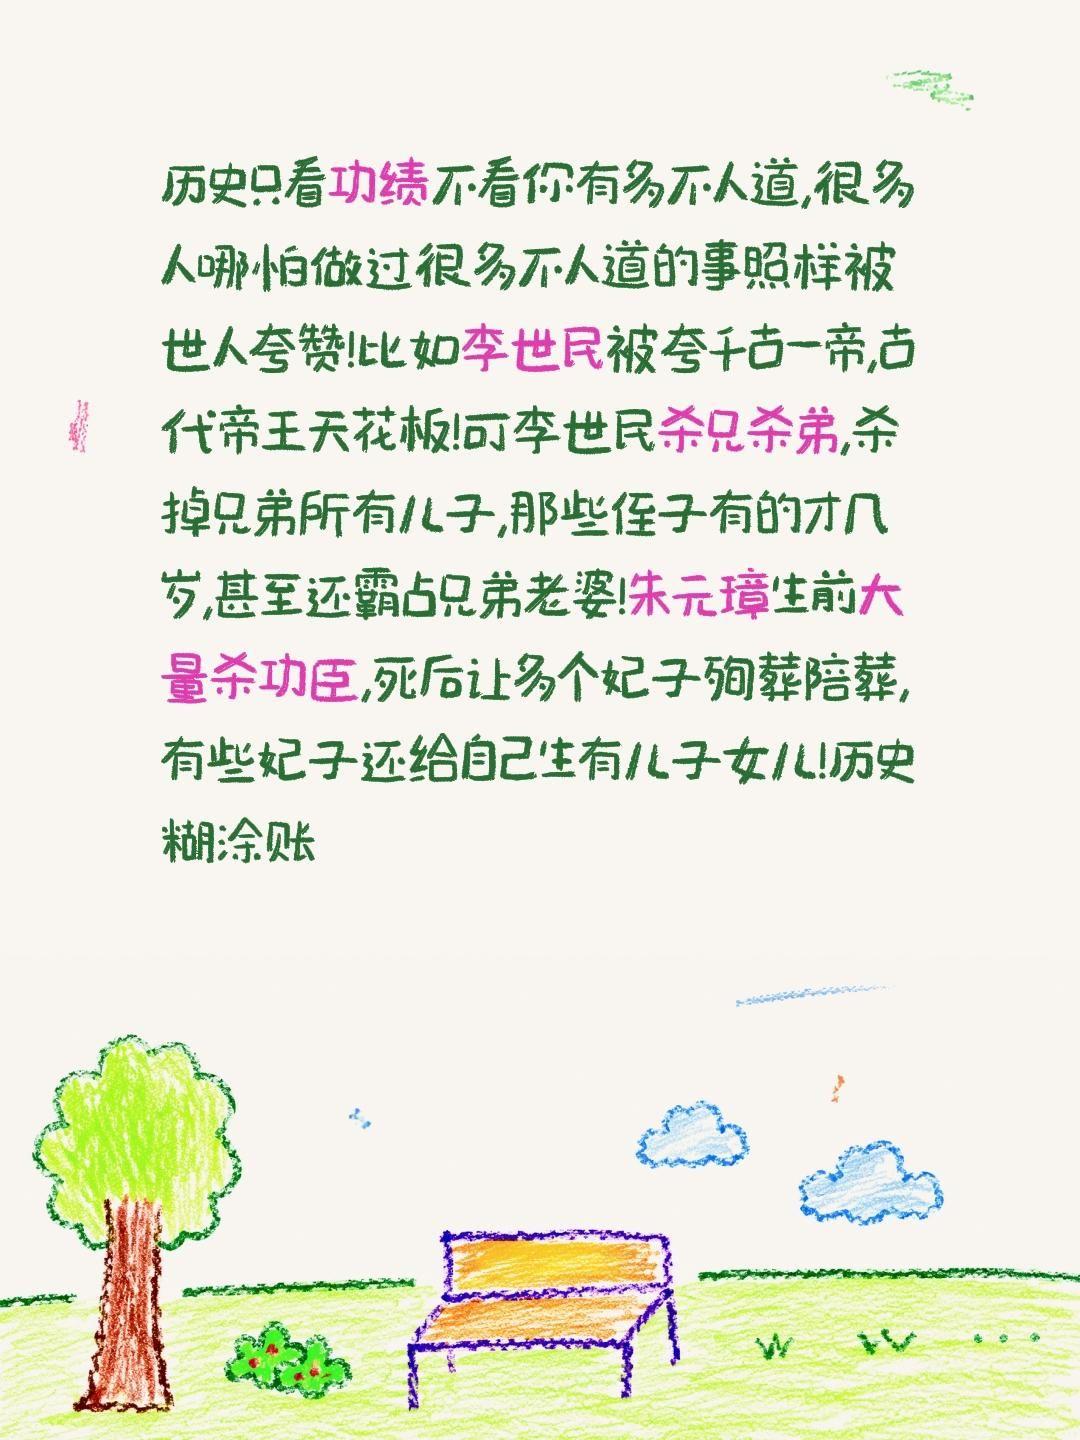 历史只看功绩不看你有多不人道,很多
人哪怕做过很多不人道的事照样被
世人夸赞!比如李世民被夸千古一帝,古
代帝王天花板!可李世民杀兄杀弟,杀
掉兄弟所有儿子,那些侄子有的才几
岁,甚至还霸占兄弟老婆!朱元璋生前大
量杀功臣,死后让多个妃子殉葬陪葬,
有些妃子还给自己生有儿子女儿!历史
糊涂账